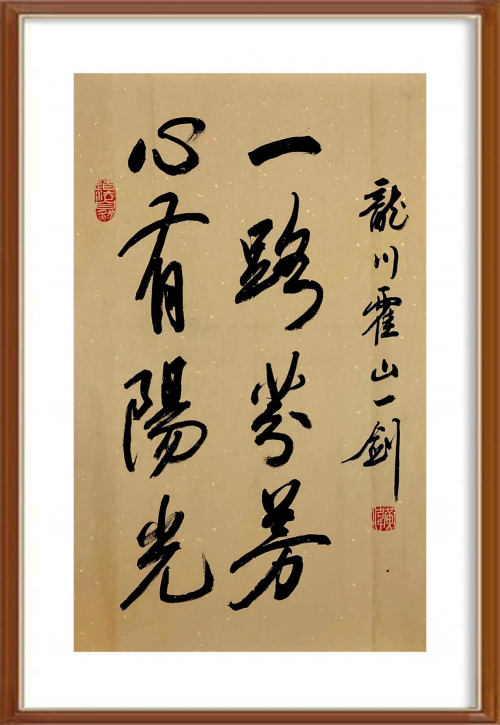 心有陽光
一路芬芳
龍川霍山一劍